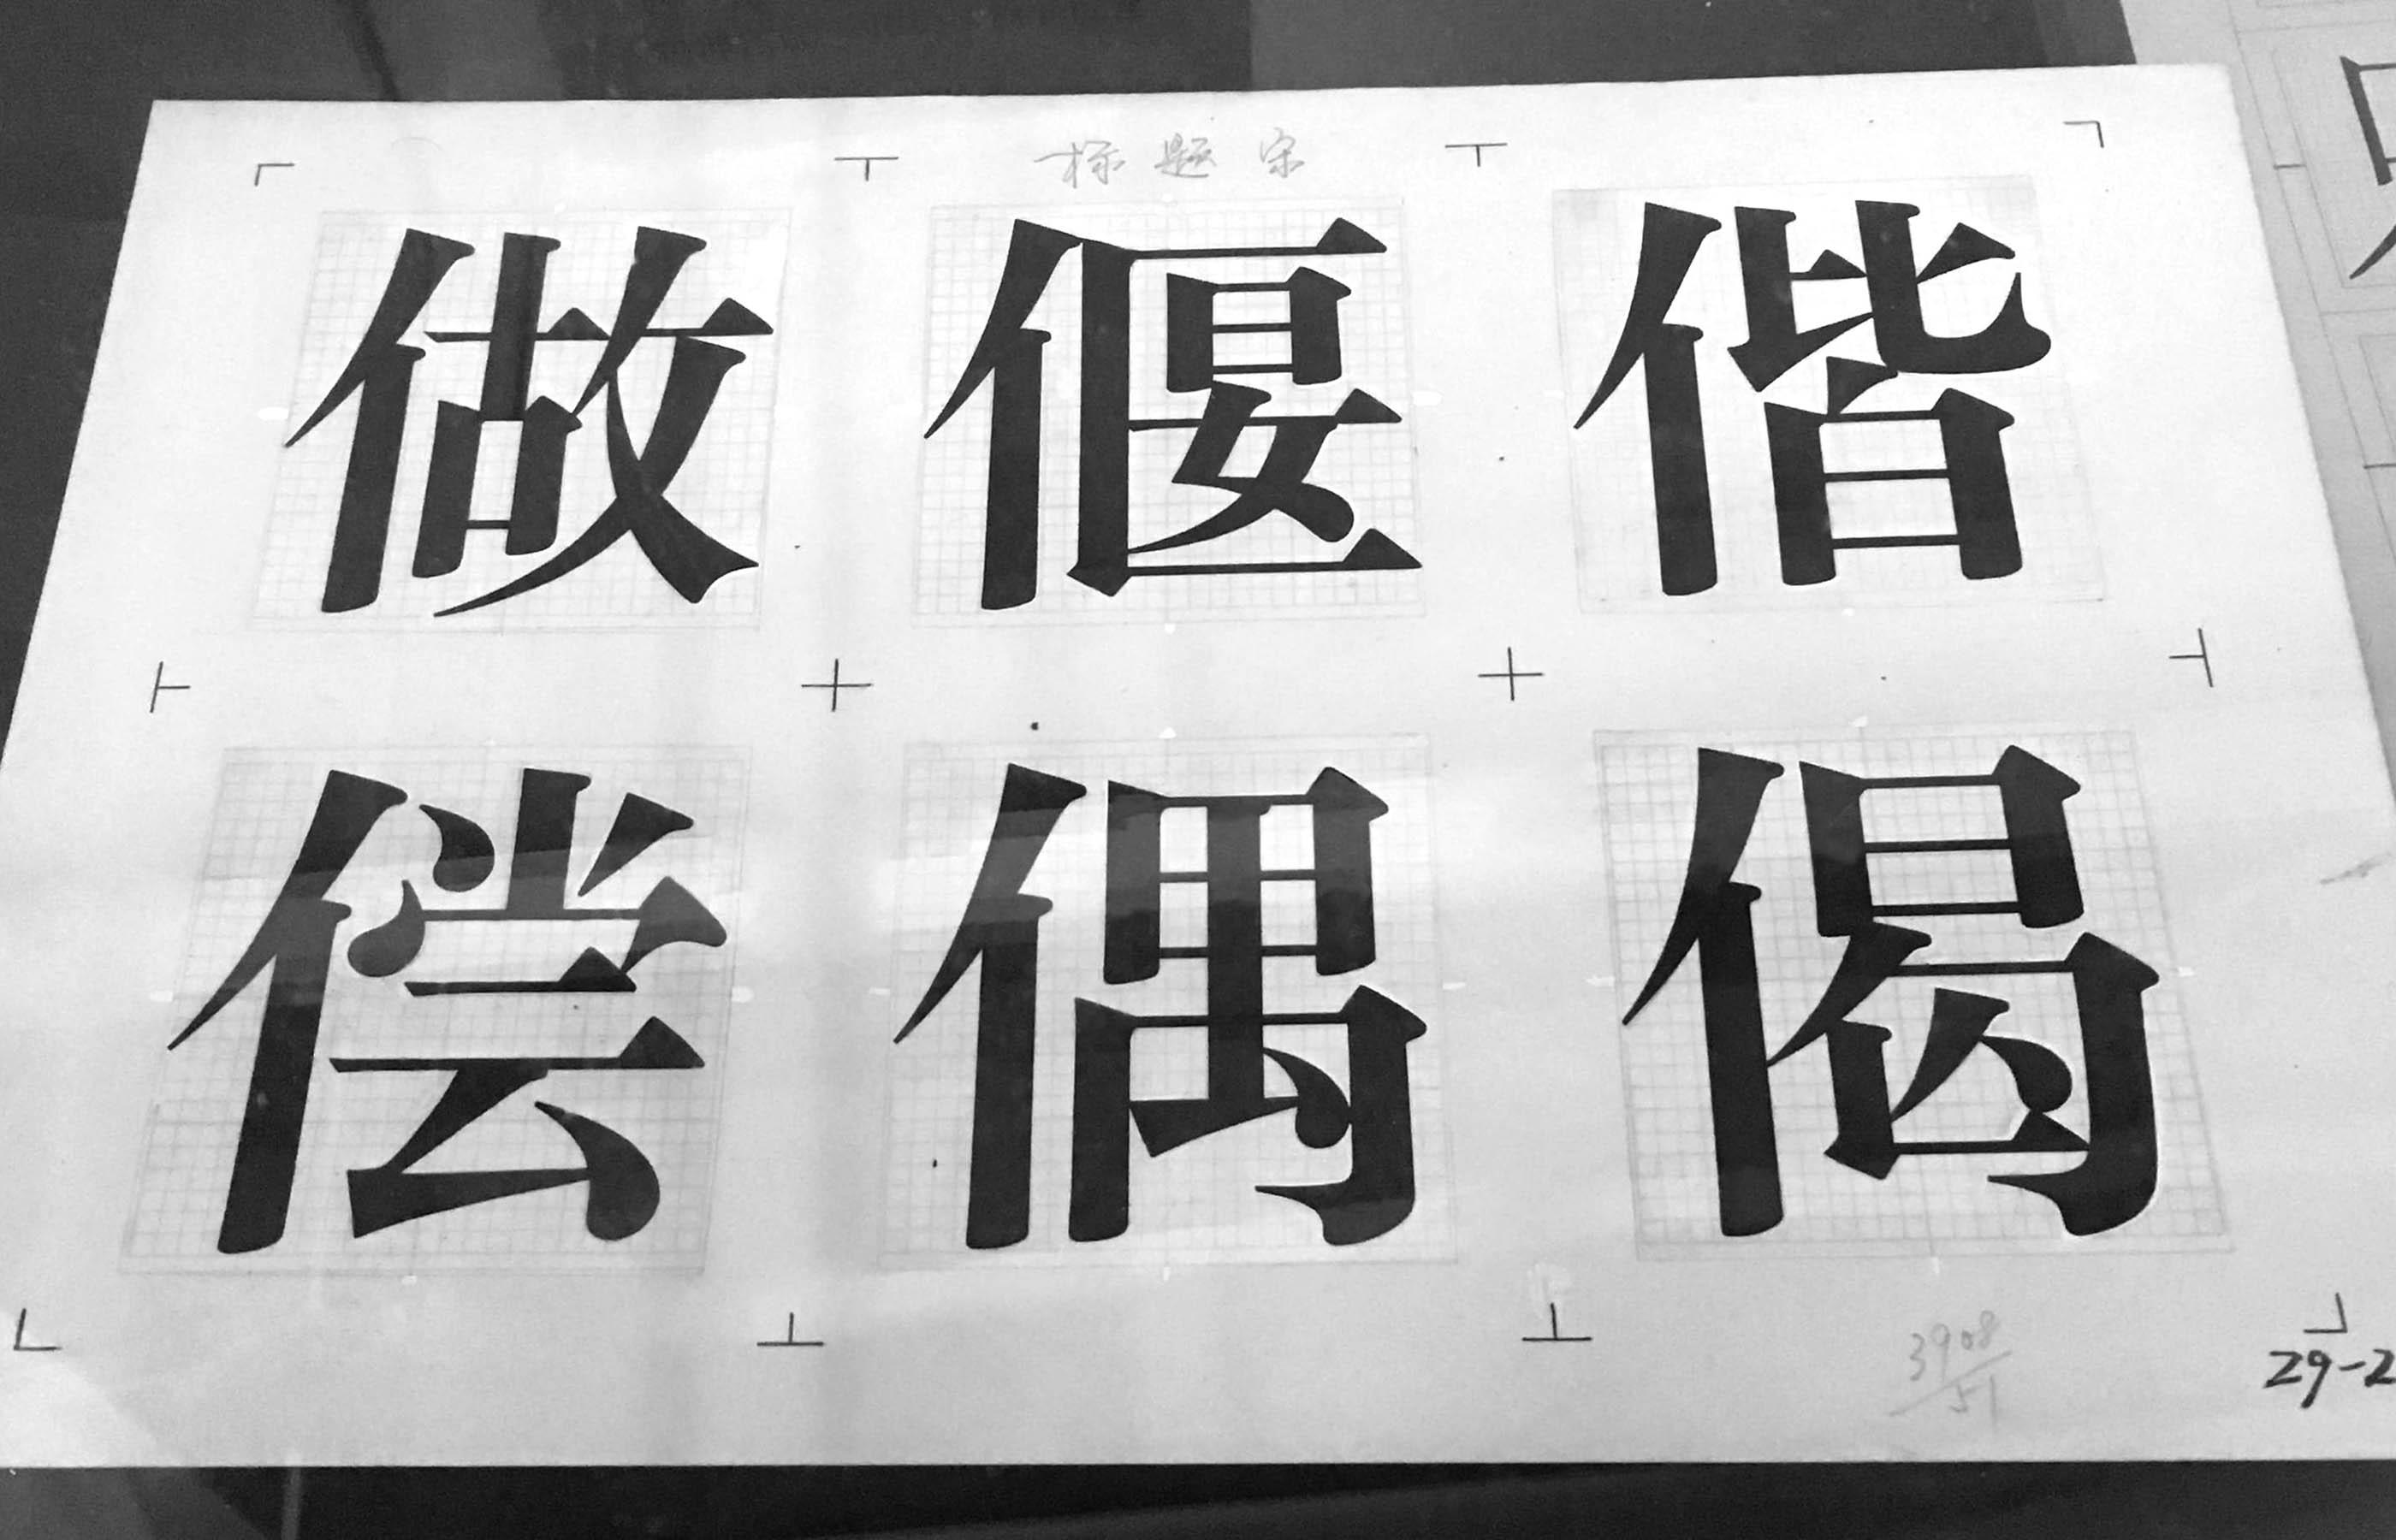 标题宋
做偃偕
偿偶偈
3908
51
29-2